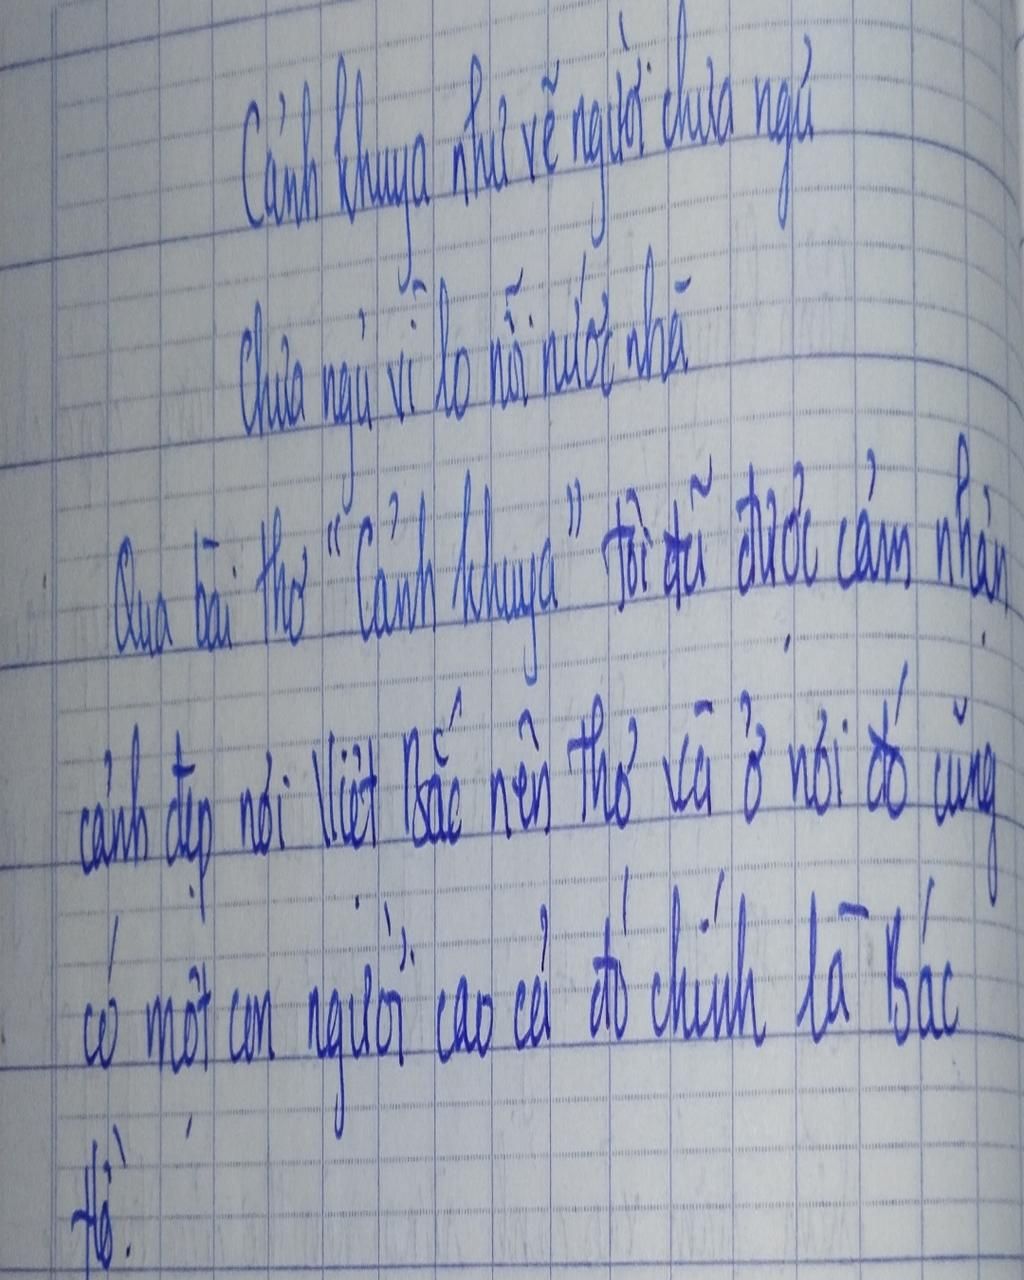 Cảnh khuya như vẽ người chưa ngủ
Chưa ngủ vì lo nỗi nước nhà
Qua bài thơ "Cảnh khuya" tôi đã được cảm nhận
cảnh đẹp nơi Việt Bắc nên thơ và ở nơi đó cũng
có một con người cao cả đó chính là Bác
Hồ.